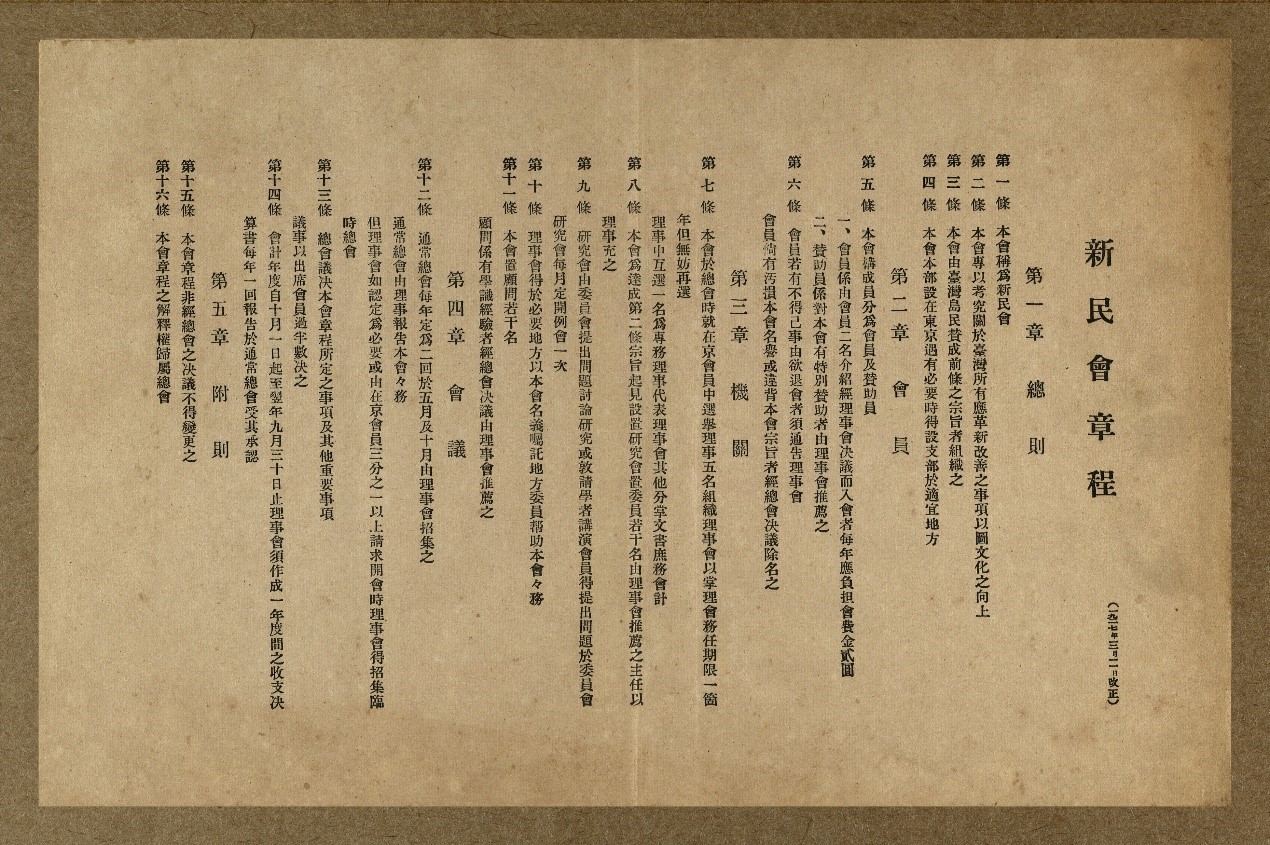 新民會章程
(一九二七年三月二一日改正)
第一章 總則
第一條 本會稱爲新民會
第二條 本會專以考究關於臺灣所有應革新改善之事項以圖文化之向上
第三條 本會由臺灣島民賛成前條之宗旨者組織之
第四條 本會本部設在東京遇有必要時得設支部於適宜地方
第二章 會員
第五條 本會搆成員分爲會員及賛助員
一、會員係由會員二名介紹經理事會決議而入會者每年應負担會費金貳圓
二、賛助員係對本會有特別賛助者由理事會推薦之
第六條 會員若有不得已事由欲退會者須通告理事會
會員倘有汚損本會名譽或違背本會宗旨者經總會決議除名之
第三章 機關
第七條 本會於總會時就在京會員中選舉理事五名組織理事會以掌理會務任期限一箇
年但無妨再選
理事中互選一名爲專務理事代表理事會其他分掌文書庶務會計
第八條 本會爲達成第二條宗旨起見設置研究會置委員若干名由理事會推薦之主任以
理事充之
第九條 研究會由委員會提出問題討論研究或敦請學者講演會員得提出問題於委員會
研究會每月定開例會一次
第十條 理事會得於必要地方以本會名義囑託地方委員帮助本會々務
第十一條 本會置顧問若干名
顧問係有學識經驗者經總會決議由理事會推薦之
第四章 會議
第十二條 通常總會每年定爲二回於五月及十月由理事會招集之
通常總會由理事報告本會々務
但理事會如認定爲必要或由在京會員三分之一以上請求開會時理事會得招集臨
時總會
第十三條 總會議決本會章程所定之事項及其他重要事項
議事以出席會員過半數決之
第十四條 會計年度自十月一日起至翌年九月三十日止理事會須作成一年度間之收支決
算書每年一回報告於通常總會受其承認
第五章 附則
第十五條 本會章程非經總會之決議不得變更之
第十六條 本會章程之解釋權歸屬總會